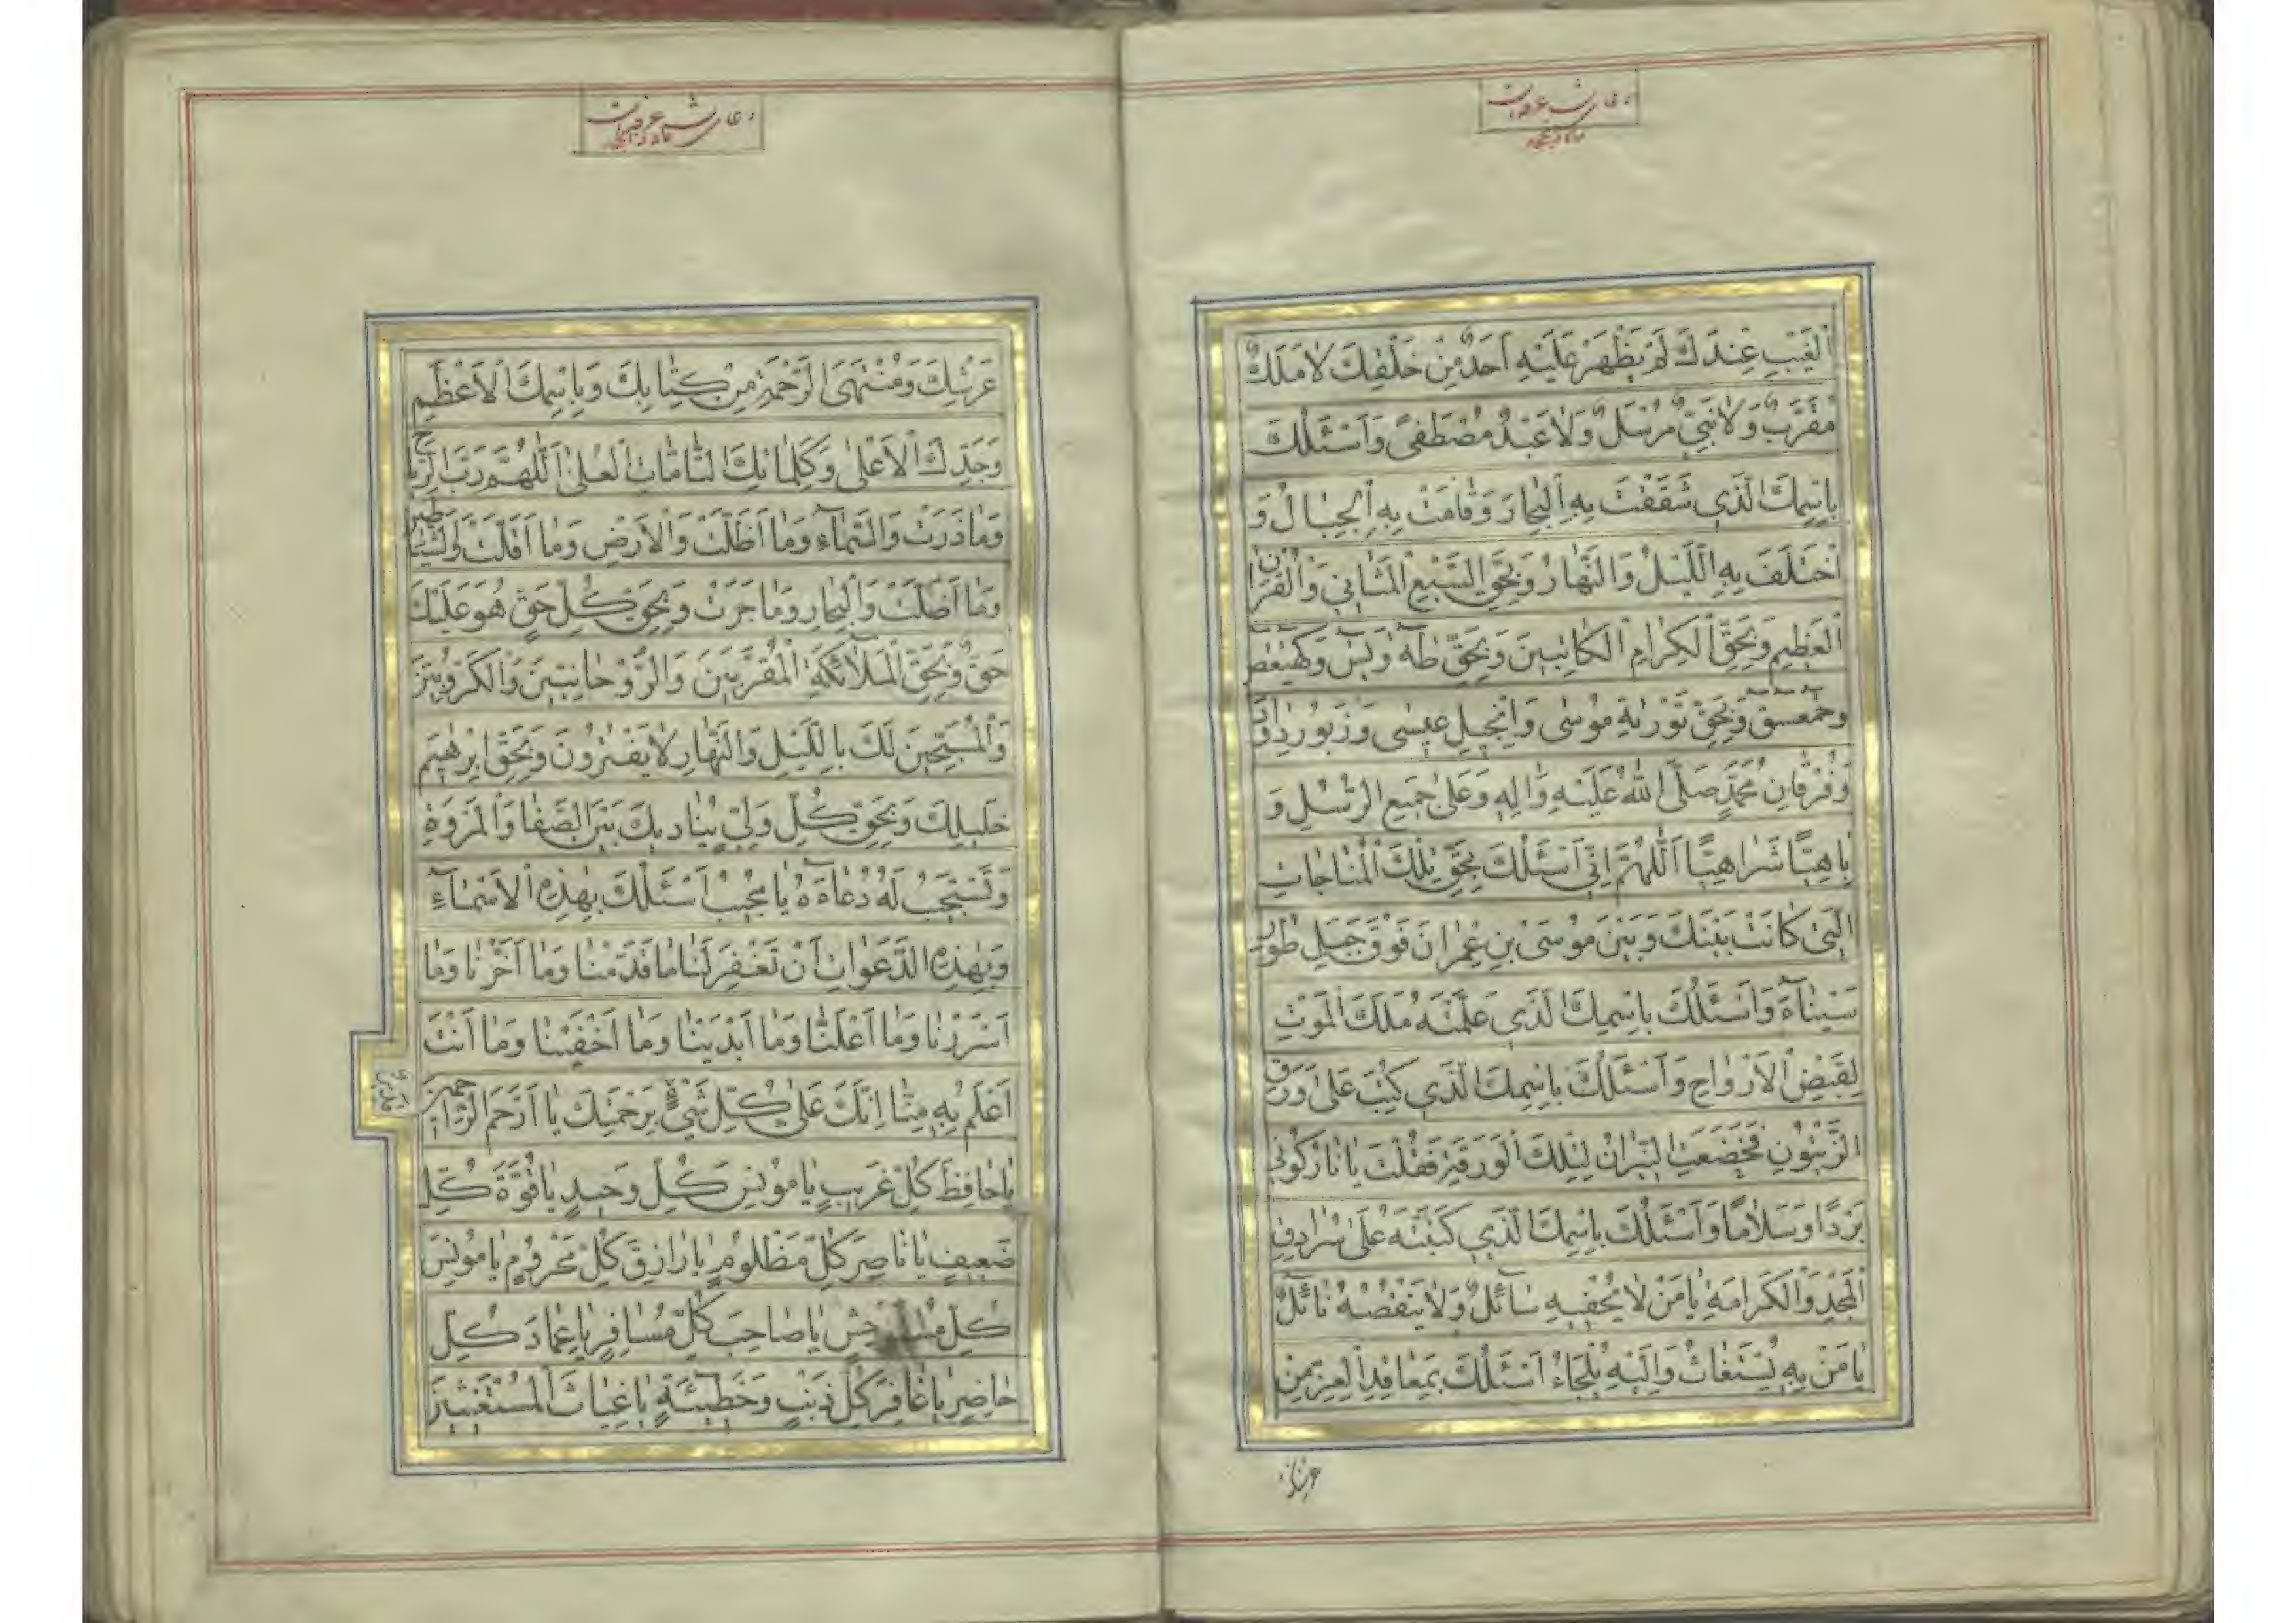 دعای شب عرفه
الْغَيْبِ عِنْدَكَ لَمْ يَظْهَرْ عَلَيْهِ اَحَدٌ مِنْ خَلْقِكَ لَا مَلَكٌ
مُقَرَّبٌ وَلَا نَبِيٌّ مُرْسَلٌ وَلَا عَبْدٌ مُصْطَفىً وَاَسْئَلُكَ
بِاسْمِكَ الَّذِي شَقَقْتَ بِهِ الْبِحَارَ وَقَامَتْ بِهِ الْجِبَالُ وَ
اخْتَلَفَ بِهِ اللَّيْلُ وَالنَّهَارُ وَبِحَقِّ السَّبْعِ الْمَثَانِي وَالْقُرْانِ
الْعَظِيمِ وَبِحَقِّ الْكِرَامِ الْكَاتِبِينَ وَبِحَقِّ طٰهٰ وَيٰسٓ وَكٓهٰيٰعٓصٓ
وَحٰمٓعٓسٓقٓ وَبِحَقِّ تَوْرٰيةِ مُوسٰى وَاِنْجِيلِ عِيسٰى وَزَبُورِ دَاوُدَ
وَفُرْقَانِ مُحَمَّدٍ صَلَّى اللهُ عَلَيْهِ وَاٰلِهِ وَعَلٰى جَمِيعِ الرُّسُلِ وَ
بِاهِيًّا شَرَاهِيًّا اَللّٰهُمَّ اِنِّي اَسْئَلُكَ بِحَقِّ تِلْكَ الْمُنَاجَاتِ
الَّتِي كَانَتْ بَيْنَكَ وَبَيْنَ مُوسَى بْنِ عِمْرَانَ فَوْقَ جَبَلِ طُورِ
سَيْنَاءَ وَاَسْئَلُكَ بِاسْمِكَ الَّذِي عَلَّمْتَهُ مَلَكَ الْمَوْتِ
لِقَبْضِ الْاَرْوَاحِ وَاَسْئَلُكَ بِاسْمِكَ الَّذِي كُتِبَ عَلٰى وَرَقِ
الزَّيْتُونِ فَخَضَعَتِ النِّيرَانُ لِتِلْكَ الْوَرَقَةِ فَقُلْتَ يَا نَارُ كُونِي
بَرْدًا وَسَلَامًا وَاَسْئَلُكَ بِاسْمِكَ الَّذِي كَتَبْتَهُ عَلٰى سُرَادِقِ
الْمَجْدِ وَالْكَرَامَةِ يَا مَنْ لَا يُحْفِيهِ سَائِلٌ وَلَا يَنْقُصُهُ نَائِلٌ
يَا مَنْ بِهِ يُسْتَغَاثُ وَاِلَيْهِ يُلْجَاءُ اَسْئَلُكَ بِمَعَاقِدِ الْعِزِّ مِنْ
عرشك
دعای شب عرفه
عَرْشِكَ وَمُنْتَهَى الرَّحْمَةِ مِنْ كِتَابِكَ وَبِاسْمِكَ الْاَعْظَمِ
وَجَدِّكَ الْاَعْلٰى وَكَلِمَاتِكَ التَّامَّاتِ الْعُلٰى اَللّٰهُمَّ رَبَّ الرِّيَاحِ
وَمَا ذَرَتْ وَالسَّمَاءِ وَمَا اَظَلَّتْ وَالْاَرْضِ وَمَا اَقَلَّتْ وَالشَّيَاطِينِ
وَمَا اَضَلَّتْ وَالْبِحَارِ وَمَا جَرَتْ وَبِحَقِّ كُلِّ حَقٍّ هُوَ عَلَيْكَ
حَقٌّ وَبِحَقِّ الْمَلَائِكَةِ الْمُقَرَّبِينَ وَالرَّوْحَانِيِّينَ وَالْكَرُّوبِيِّينَ
وَالْمُسَبِّحِينَ لَكَ بِاللَّيْلِ وَالنَّهَارِ لَا يَفْتُرُونَ وَبِحَقِّ اِبْرٰهِيمَ
خَلِيلِكَ وَبِحَقِّ كُلِّ وَلِيٍّ يُنَادِيكَ بَيْنَ الصَّفَا وَالْمَرْوَةِ
وَتَسْتَجِيبُ لَهُ دُعَاءَهُ يَا مُجِيبُ اَسْئَلُكَ بِهٰذِهِ الْاَسْمَاءِ
وَبِهٰذِهِ الدَّعَوَاتِ اَنْ تَغْفِرَ لَنَا مَا قَدَّمْنَا وَمَا اَخَّرْنَا وَمَا
اَسْرَرْنَا وَمَا اَعْلَنَّا وَمَا اَبْدَيْنَا وَمَا اَخْفَيْنَا وَمَا اَنْتَ
اَعْلَمُ بِهِ مِنَّا اِنَّكَ عَلٰى كُلِّ شَيْءٍ قَدِيرٌ بِرَحْمَتِكَ يَا اَرْحَمَ الرَّاحِمِينَ
يَا حَافِظَ كُلِّ غَرِيبٍ يَا مُونِسَ كُلِّ وَحِيدٍ يَا قُوَّةَ كُلِّ
ضَعِيفٍ يَا نَاصِرَ كُلِّ مَظْلُومٍ يَا رَازِقَ كُلِّ مَحْرُومٍ يَا مُونِسَ
كُلِّ مُسْتَوْحِشٍ يَا صَاحِبَ كُلِّ مُسَافِرٍ يَا عِمَادَ كُلِّ
حَاضِرٍ يَا غَافِرَ كُلِّ ذَنْبٍ وَخَطِيئَةٍ يَا غِيَاثَ الْمُسْتَغِيثِينَ